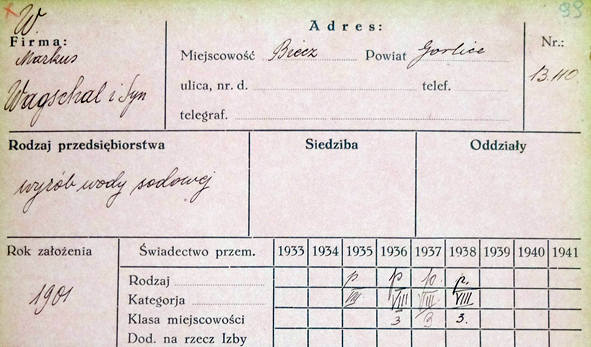 W. 99
Adres:
Firma: Markus
Miejscowość Biecz Powiat Gorlice Nr.:
13.110.
Wagschal i Syn
ulica, nr. d. telef.
telegraf.
Rodzaj przedsiębiorstwa Siedziba Oddziały
wyrób wody sodowej
Rok założenia Świadectwo przem. 1933 1934 1935 1936 1937 1938 1939 1940 1941
1901
Rodzaj p. p. p. p.
Kategorja VIII VIII VIII VIII
Klasa miejscowości 3 3 3.
Dod. na rzecz Izby